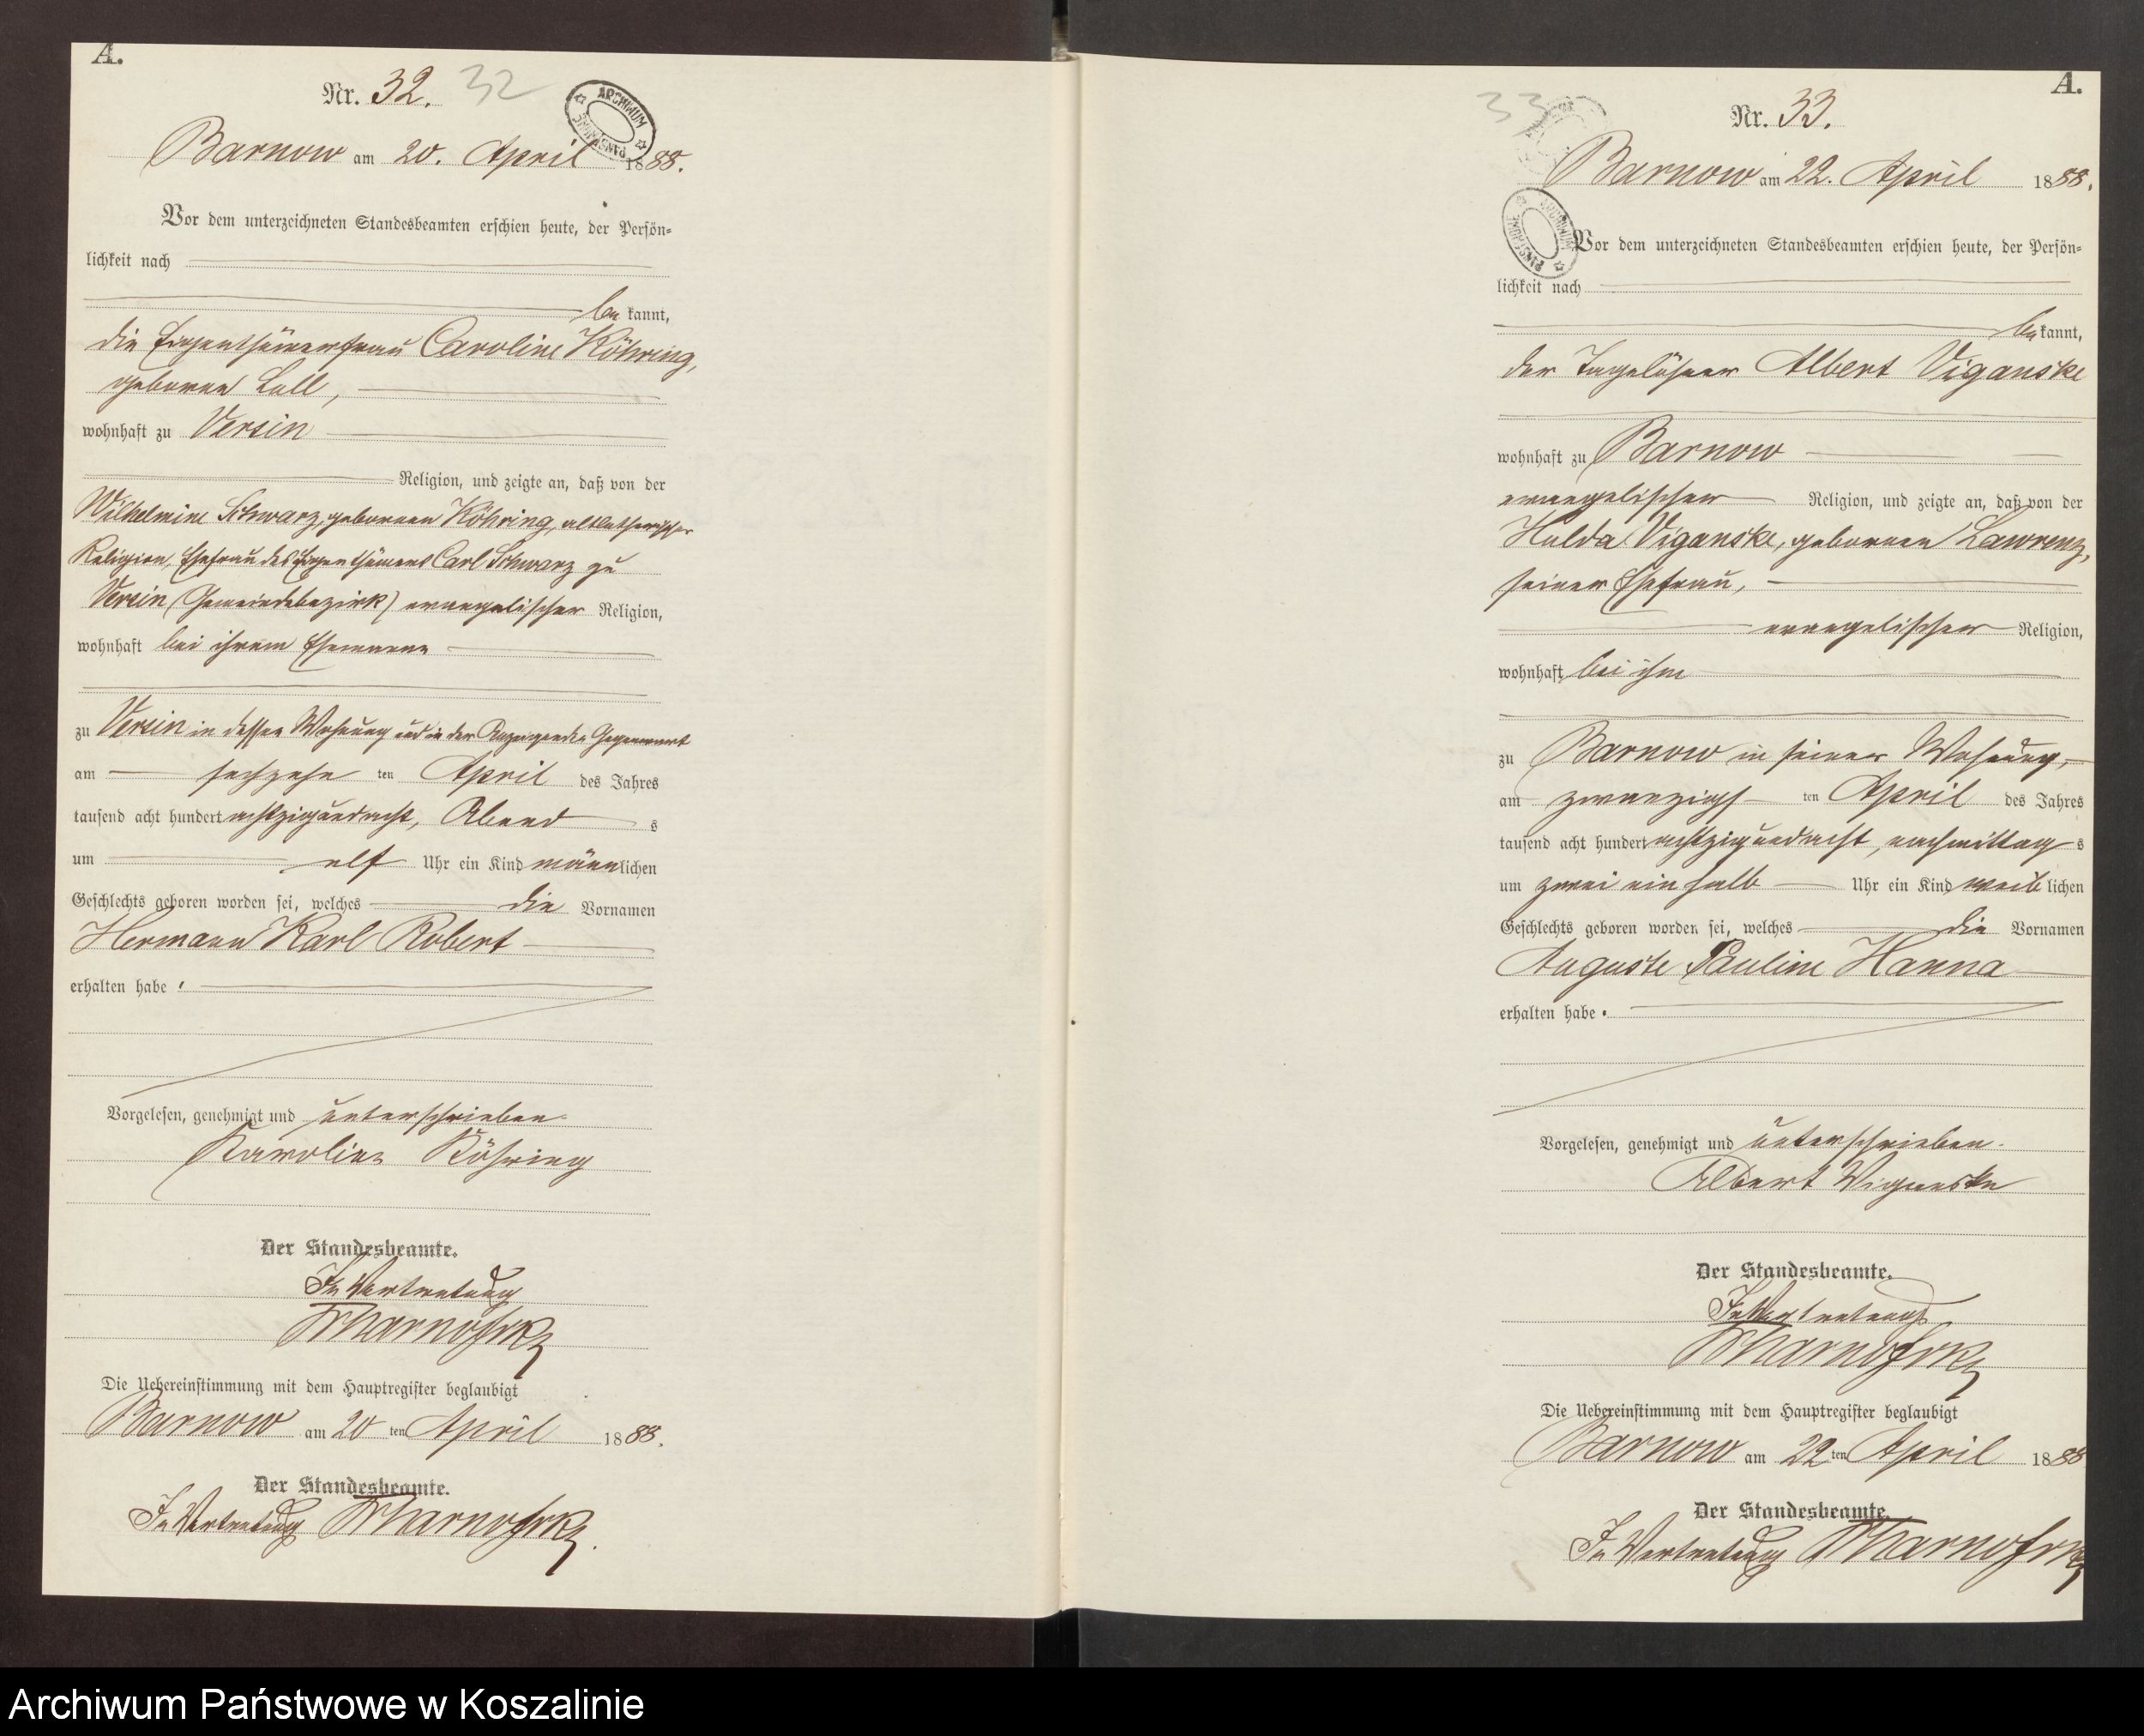 A.
Nr. 32. 32
ARCHIWUM PAŃSTWOWE
Barnow am 20. April 1888.
Vor dem unterzeichneten Standesbeamten erschien heute, der Persön-
lichkeit nach
be kannt,
die Eigenthümerfrau Caroline Köhring,
geborene Lull,
wohnhaft zu Versin
Religion, und zeigte an, daß von der
Wilhelmine Schwarz, geborenen Köhring, altlutherischer
Religion, Ehefrau des Eigenthümers Carl Schwarz zu
Versin (Gemeindebezirk) evangelischer Religion,
wohnhaft bei ihrem Ehemanne
zu Versin in dessen Wohnung und in der Anzeigenden Gegenwart
am sechzehn ten April des Jahres
tausend acht hundert achtzigundacht, Abend s
um elf Uhr ein Kind männ lichen
Geschlechts geboren worden sei, welches die Vornamen
Hermann Karl Robert
erhalten habe.
Vorgelesen, genehmigt und unterschrieben.
Karoline Köhring
Der Standesbeamte.
In Vertretung
Die Uebereinstimmung mit dem Hauptregister beglaubigt
Barnow am 20 ten April 1888.
Der Standesbeamte.
In Vertretung
A.
33 Nr. 33.
Barnow am 22. April 1888.
ARCHIWUM PAŃSTWOWE
Vor dem unterzeichneten Standesbeamten erschien heute, der Persön-
lichkeit nach
be kannt,
der Tagelöhner Albert Viganske
wohnhaft zu Barnow
evangelischer Religion, und zeigte an, daß von der
Hulda Viganske, geborenen Lawrenz,
seiner Ehefrau,
evangelischer Religion,
wohnhaft bei ihm
zu Barnow in seiner Wohnung,
am zwanzigs ten April des Jahres
tausend acht hundert achtzigundacht, nachmittag s
um zwei ein halb Uhr ein Kind weib lichen
Geschlechts geboren worden sei, welches die Vornamen
Auguste Pauline Hanna
erhalten habe.
Vorgelesen, genehmigt und unterschrieben.
Albert Viganske
Der Standesbeamte.
In Vertretung
Die Uebereinstimmung mit dem Hauptregister beglaubigt
Barnow am 22 ten April 1888
Der Standesbeamte.
In Vertretung
Archiwum Państwowe w Koszalinie